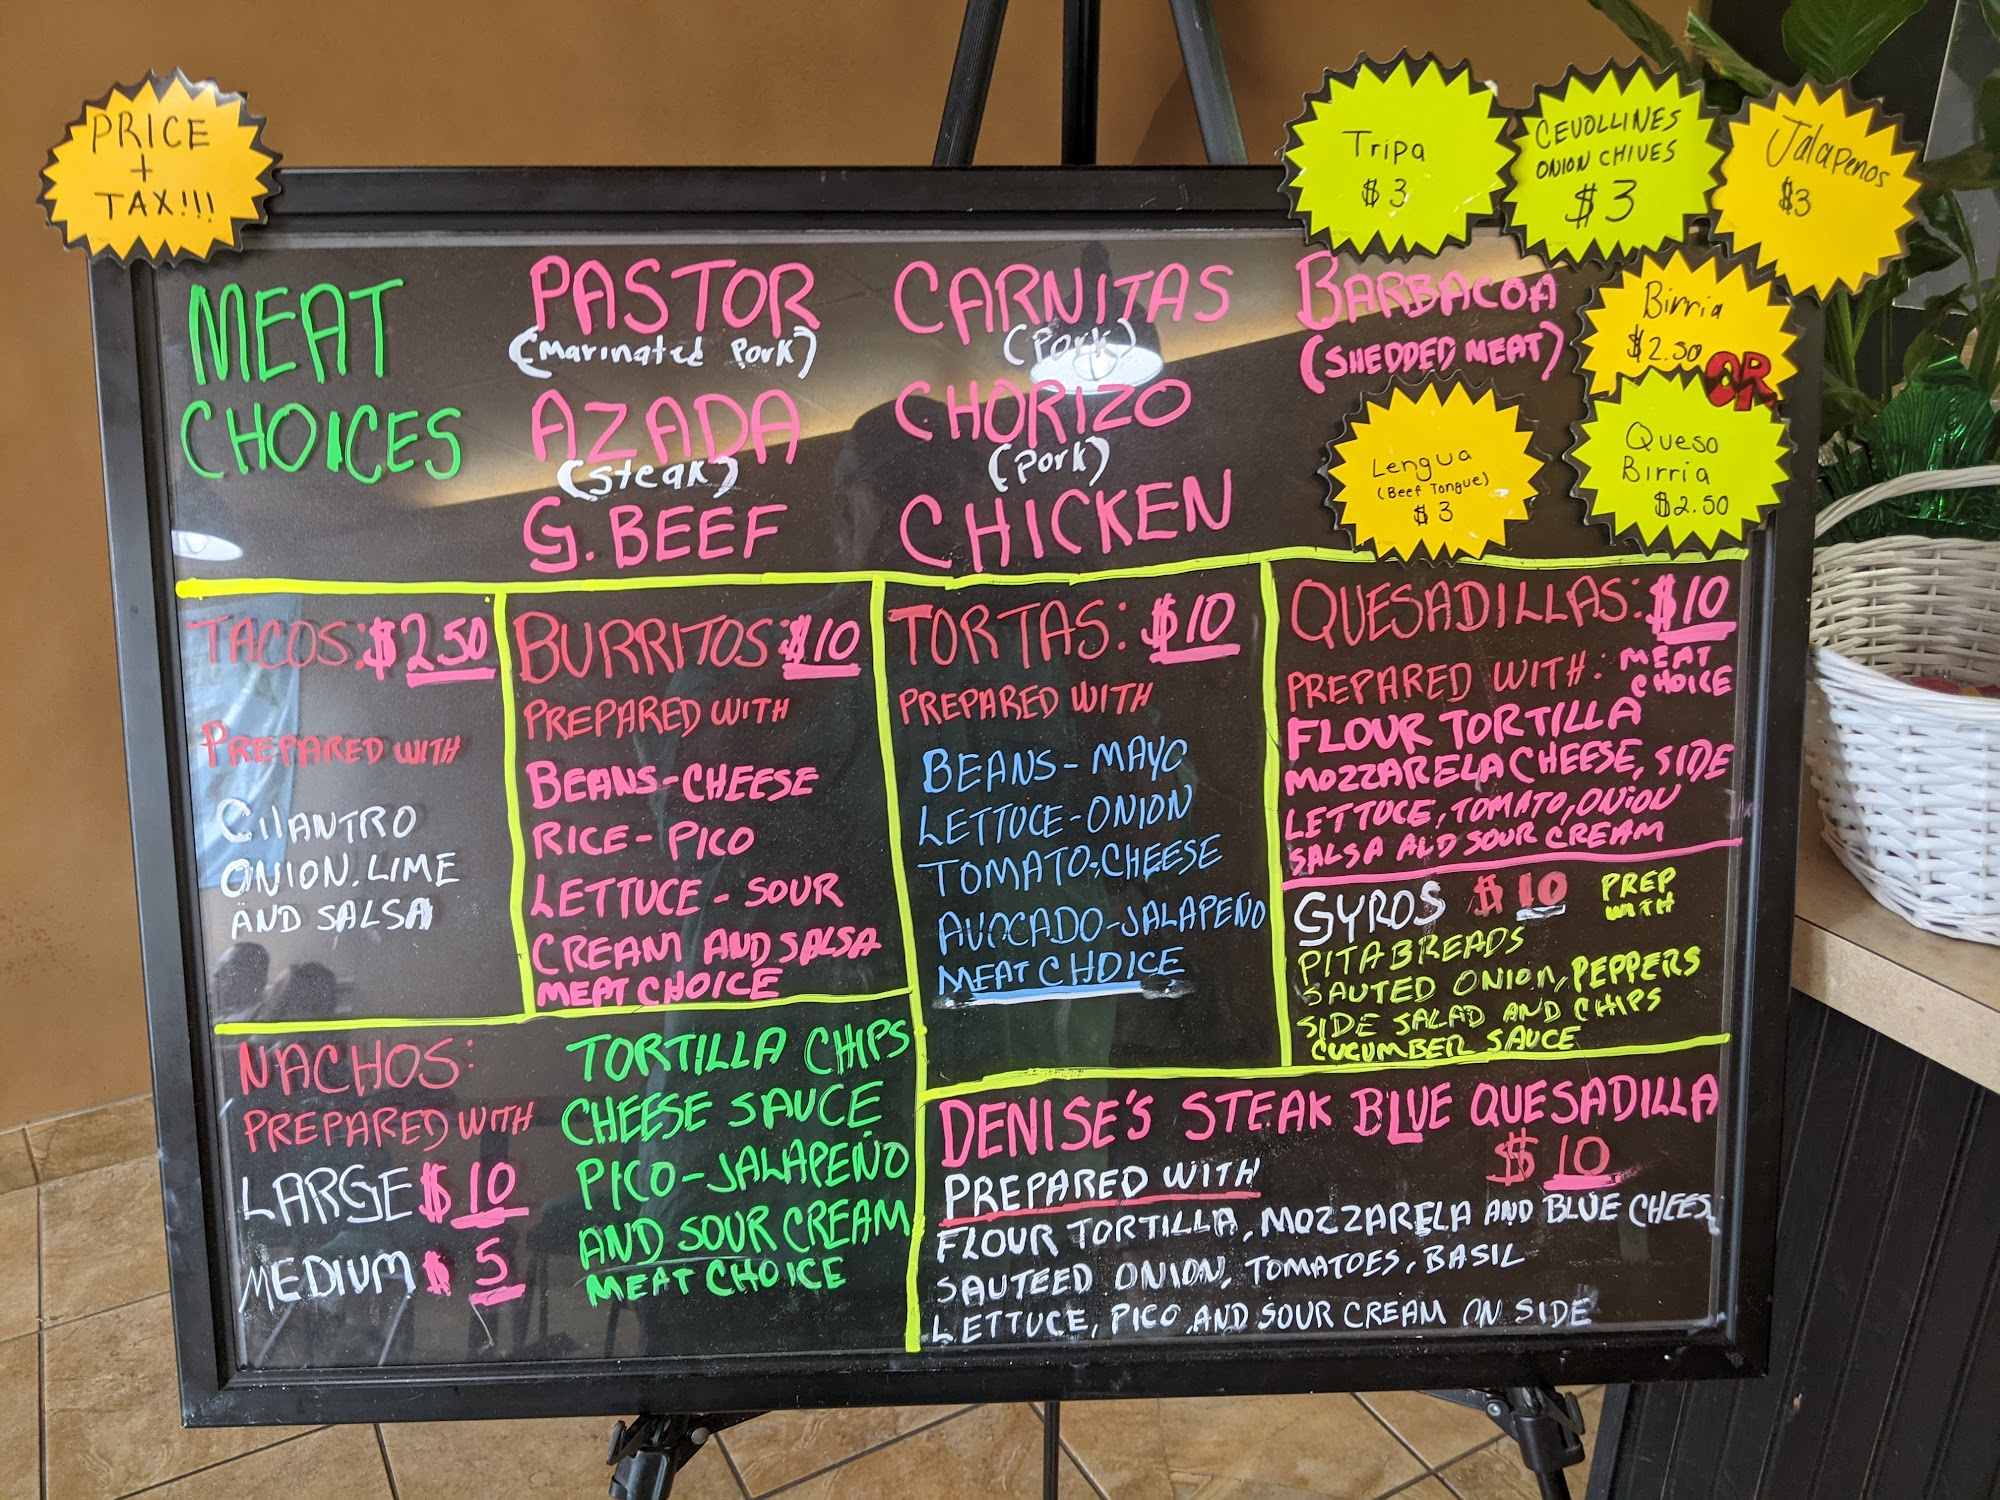 PRICE
+
TAX!!!
Tripa
$3
CEVOLLINES
ONION CHIVES
$3
Jalapenos
$3
Birria
$2.50
OR
Queso
Birria
$2.50
Lengua
(Beef Tongue)
$3
MEAT
CHOICES
PASTOR
(Marinated Pork)
AZADA
(Steak)
G. BEEF
CARNITAS
(Pork)
CHORIZO
(Pork)
CHICKEN
BARBACOA
(SHEDDED MEAT)
TACOS: $2.50
PREPARED WITH
CILANTRO
ONION. LIME
AND SALSA
BURRITOS: $10
PREPARED WITH
BEANS-CHEESE
RICE-PICO
LETTUCE - SOUR
CREAM AND SALSA
MEAT CHOICE
TORTAS: $10
PREPARED WITH
BEANS-MAYO
LETTUCE-ONION
TOMATO-CHEESE
AVOCADO-JALAPEÑO
MEAT CHOICE
QUESADILLAS: $10
PREPARED WITH: MEAT
CHOICE
FLOUR TORTILLA
MOZZARELA CHEESE, SIDE
LETTUCE, TOMATO, ONION
SALSA AND SOUR CREAM
GYROS $10 PREP
WITH
PITA BREADS
SAUTED ONION, PEPPERS
SIDE SALAD AND CHIPS
CUCUMBER SAUCE
NACHOS:
PREPARED WITH
LARGE $10
MEDIUM $5
TORTILLA CHIPS
CHEESE SAUCE
PICO-JALAPEÑO
AND SOUR CREAM
MEAT CHOICE
DENISE'S STEAK BLUE QUESADILLA
$10
PREPARED WITH
FLOUR TORTILLA, MOZZARELA AND BLUE CHEES
SAUTEED ONION, TOMATOES, BASIL
LETTUCE, PICO AND SOUR CREAM ON SIDE